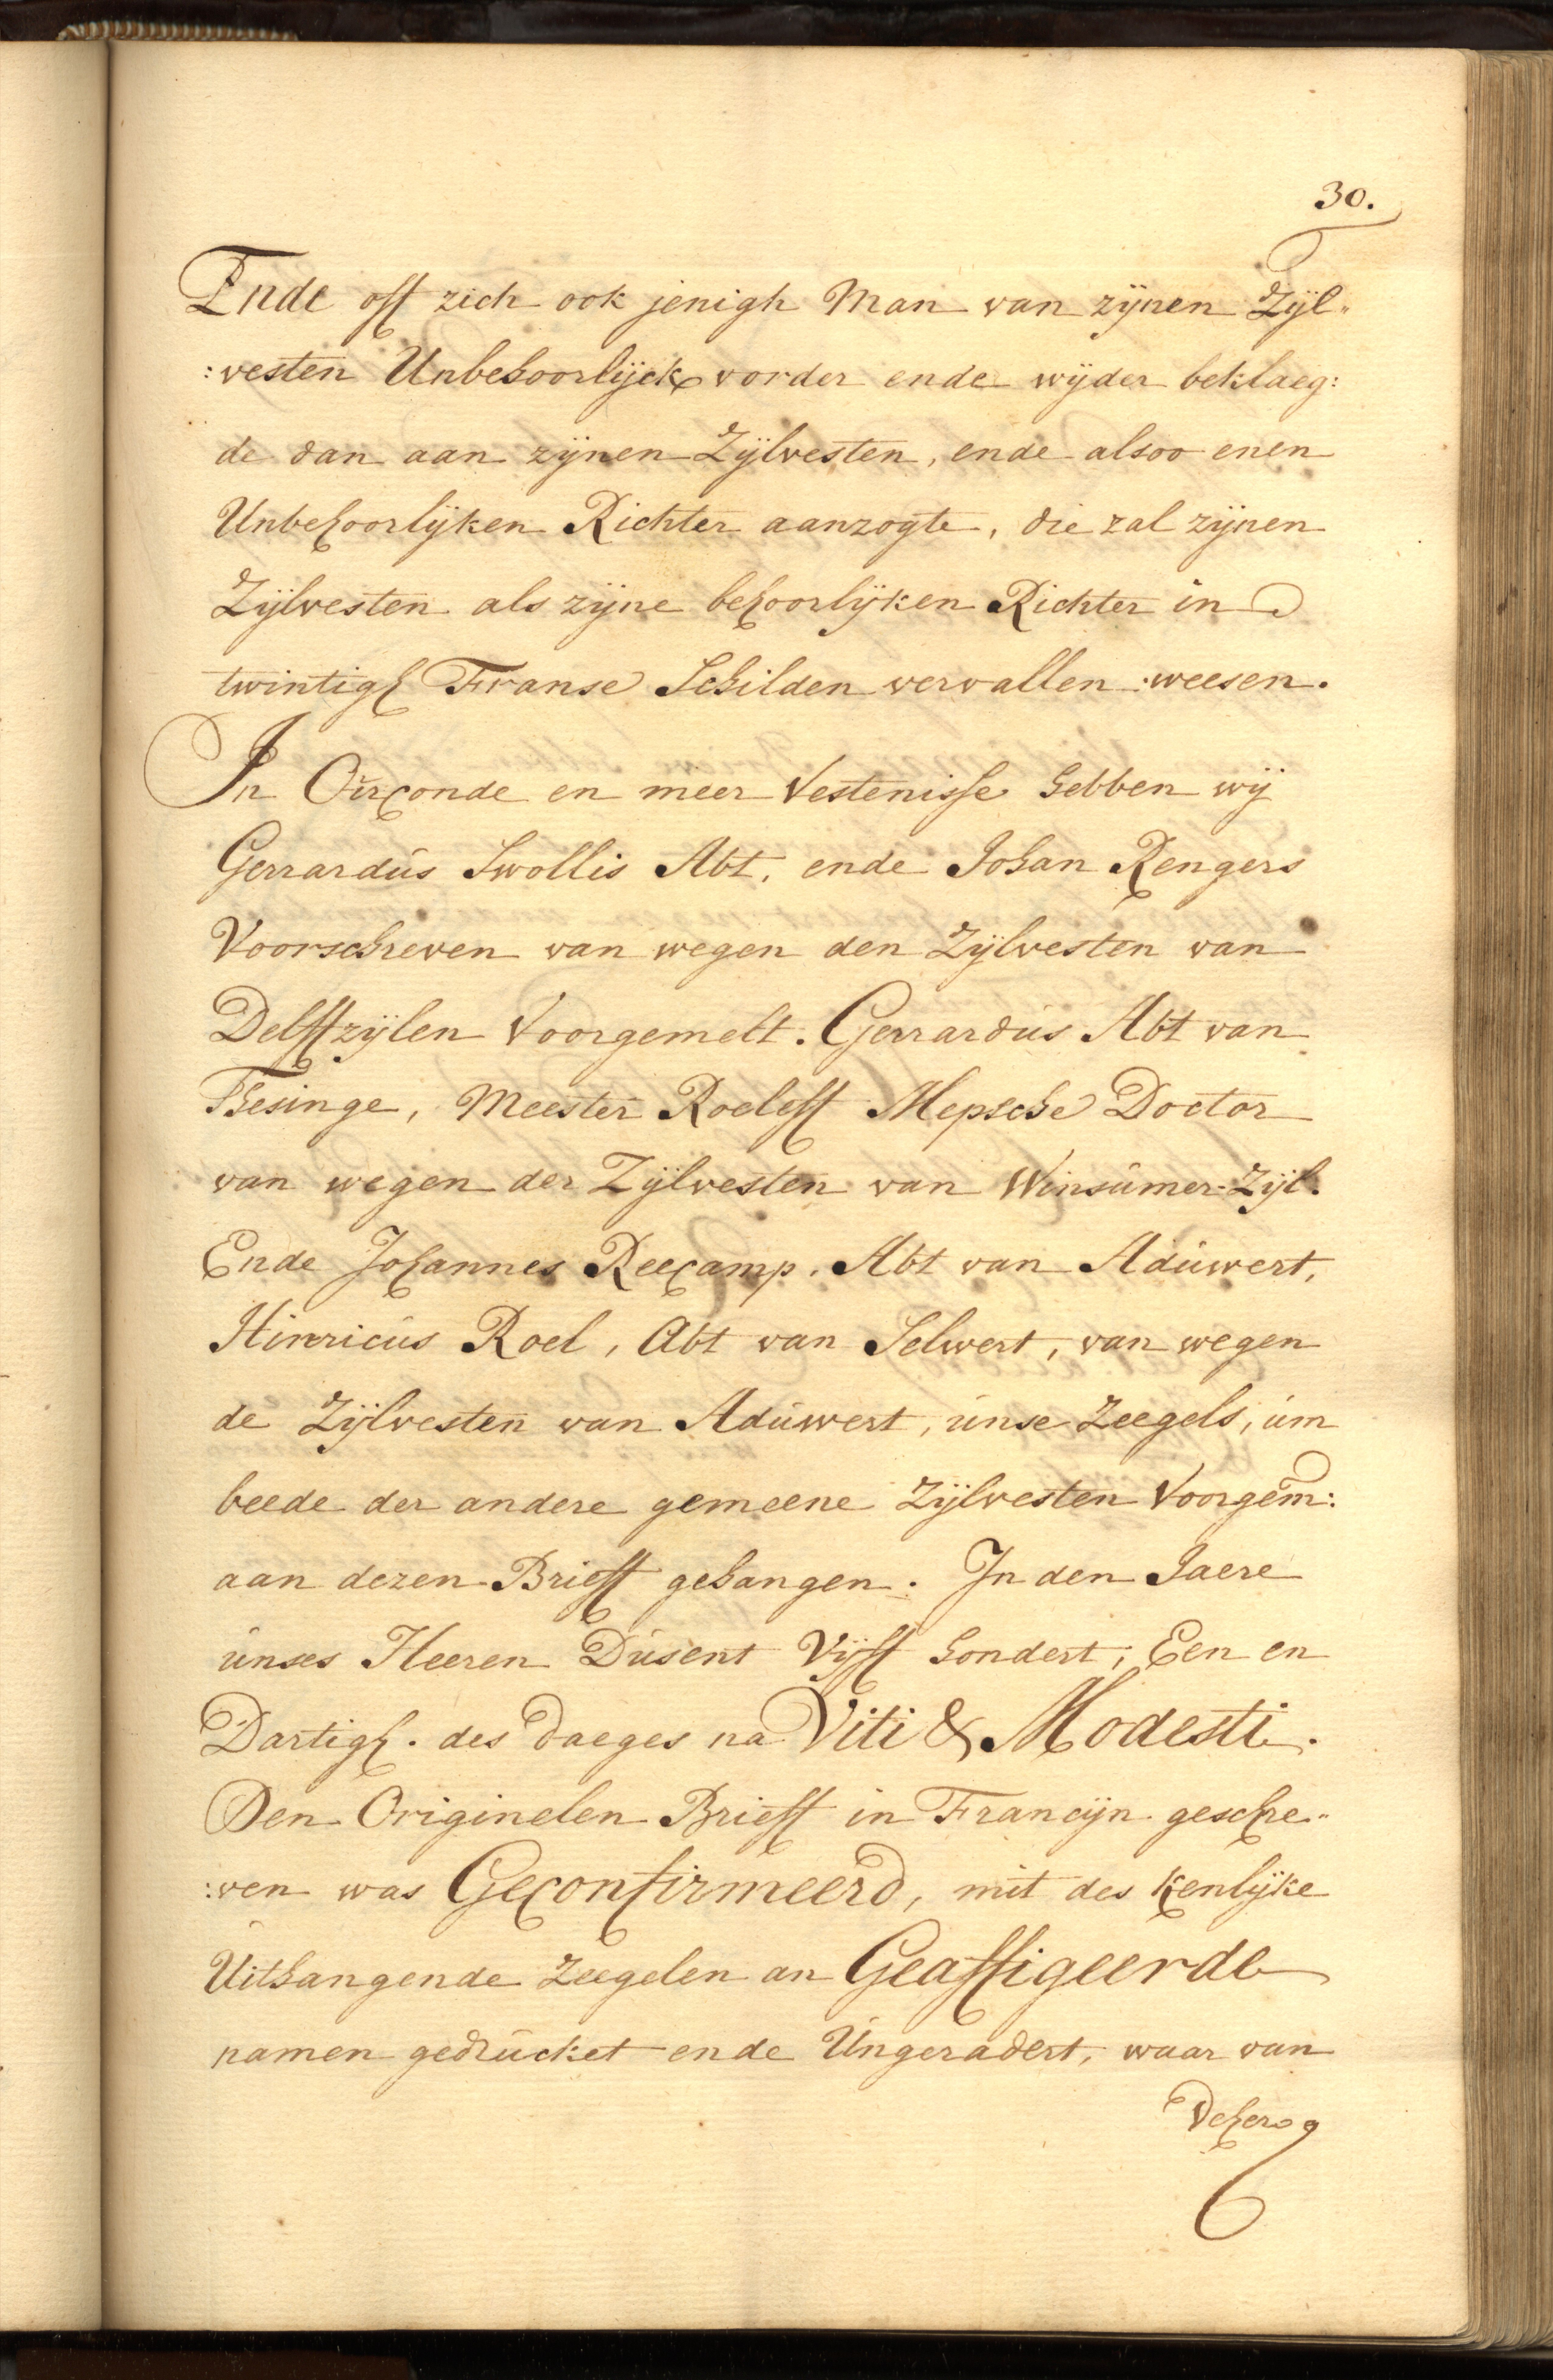 30.
Ende off zich ook jenigh Man van zÿnen Zÿl„
:vesten Unbehoorlÿck vorder ende wÿder beklaeg:
de dan aan zÿnen Zÿlvesten, ende alsoo enen
Unbehoorlÿken Richter aanzogte, die zal zÿnen
Zÿlvesten als zÿne behoorlÿken Richter in
twintigh Franse Schilden vervallen weesen.
In Oirconde en meer Vestenisse hebben wÿ
Gerrardus Swollis Abt, ende Johan Rengers
Voorschreven van wegen den Zÿlvesten van
Delffzÿlen Voorgemelt. Gerrardus Abt van
Thesinge, Meester Roeleff Mepsche Doctor
van wegen der Zÿlvesten van Winsumer-Zÿl.
Ende Johannes Reecamp, Abt van Aduwert,
Hinricus Roel, Abt van Selwert, van wegen
de Zÿlvesten van Aduwert, unse Zeegels, um
beede der andere gemeene Zÿlvesten Voorgem:
aan dezen Brieff gehangen. In den Jaere
unses Heeren Dusent Vÿff hondert, Een en
Dartigh. des daeges na Viti & Modesti.
Den Originelen Brieff in Francÿn geschre„
:ven was Geconfirmeerd, mit des Kenlÿke
Uithangende Zeegelen an Geaffigeerde
namen gedrucket ende Ungeradert, waar van